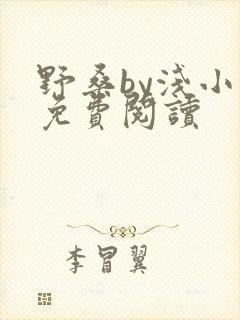 野桑by浅小
免費閱讀
李冒翼